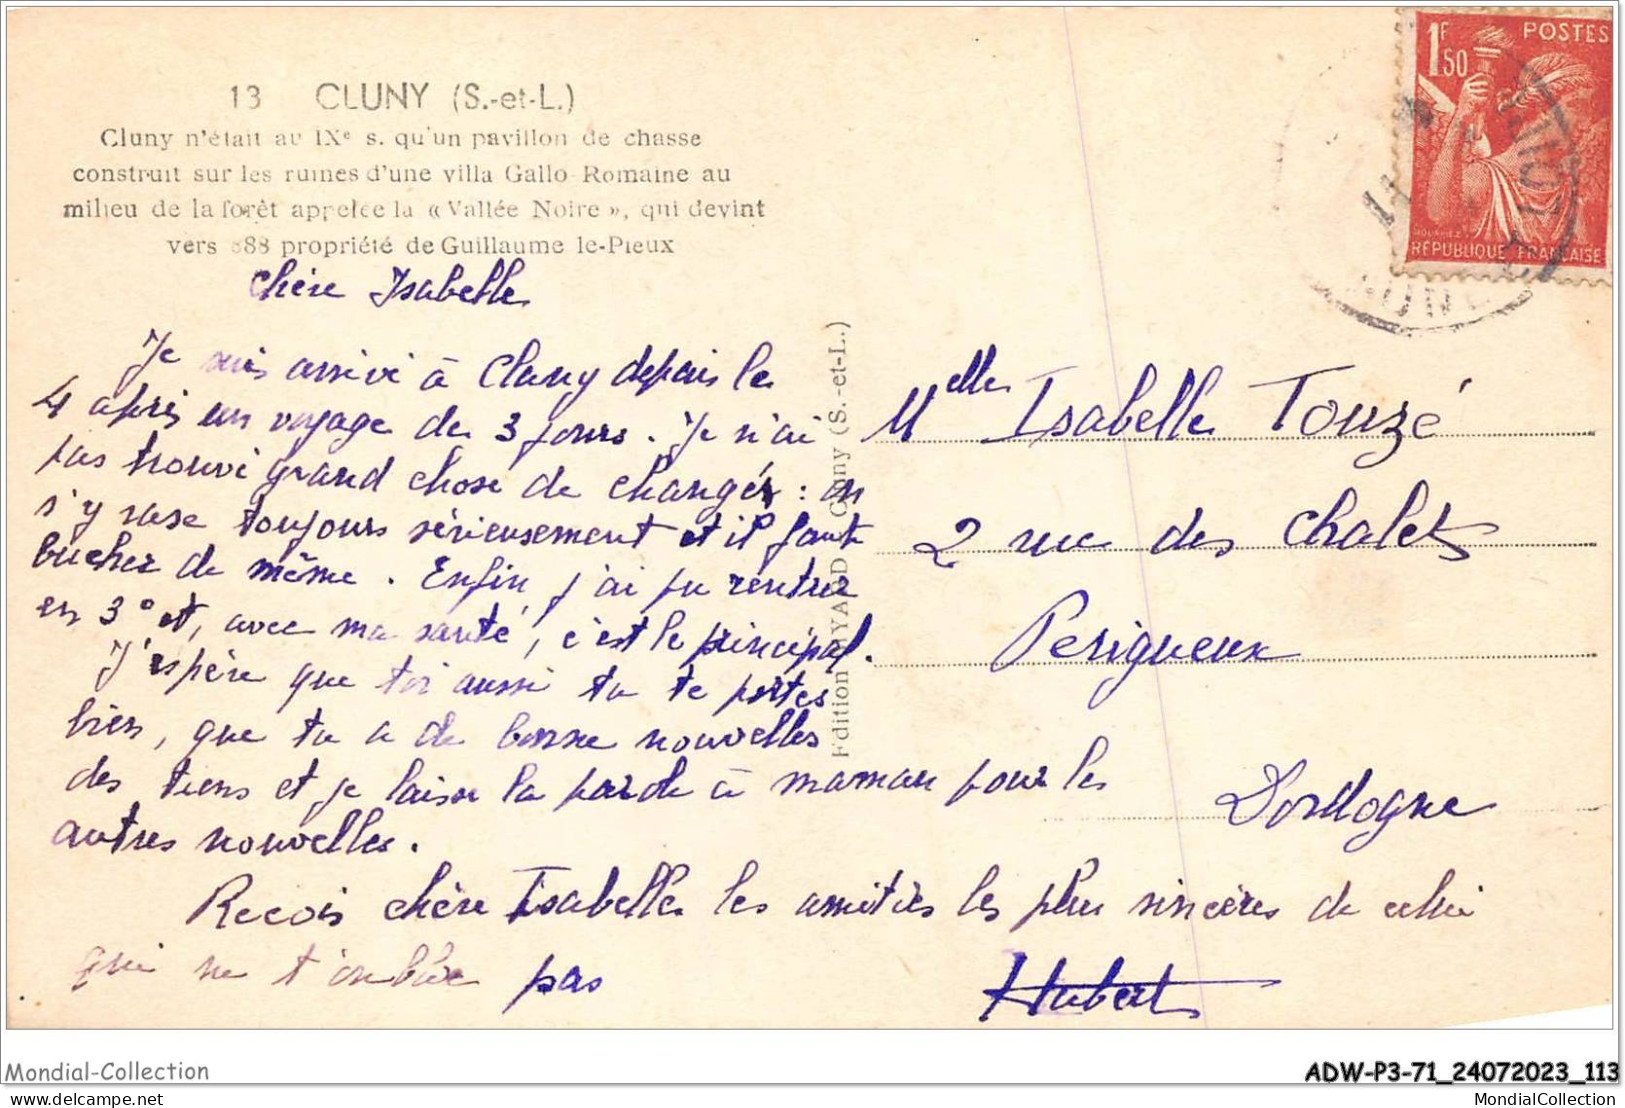 13 CLUNY (S.-et-L.)
Cluny n'était au IXe s. qu'un pavillon de chasse
construit sur les ruines d'une villa Gallo Romaine au
milieu de la forêt appelée la « Vallée Noire », qui devint
vers 888 propriété de Guillaume le-Pieux
1F50 POSTES
RÉPUBLIQUE FRANÇAISE
Chère Isabelle
Je suis arrivé à Cluny depuis le
4 après un voyage de 3 jours. Je n'ai
pas trouvé grand chose de changér : on
s'y rase toujours sérieusement et il faut
bucher de même. Enfin j'ai pu rentrer
en 3° et, avec ma santé, c'est le principal.
J'espère que toi aussi tu te portes
bien, que tu a de bonne nouvelles
des tiens et je laisse la parole à maman pour les
autres nouvelles.
Recois chère Isabelle les amitiés les plus sincères de celui
qui ne t'oublie pas
Hubert
Edition BYARD Cluny (S.-et-L.)
Melle Isabelle Touzé
2 rue des Chalets
Perigueux
Dordogne
Mondial-Collection
delcampe.net
ADW-P3-71_24072023_113
MondialCollection